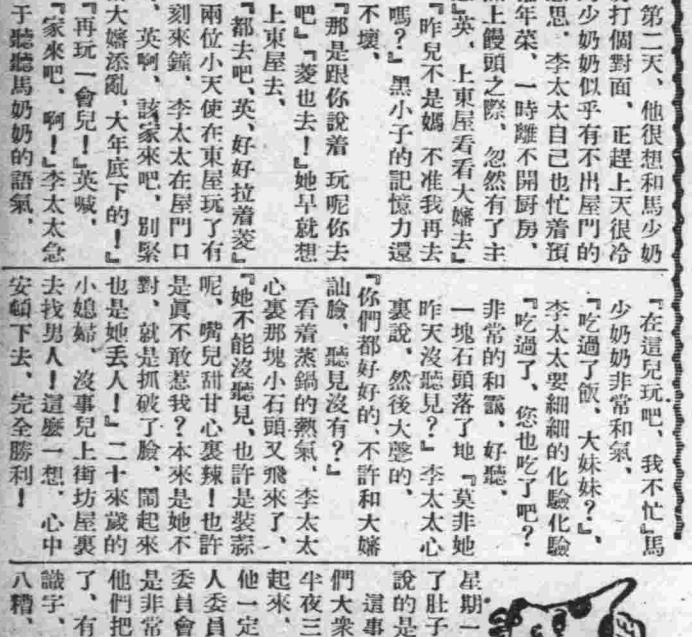 第二天、他很想和馬少奶
打個對面、正趕上天很冷
馬少奶奶似乎有不出屋門的
意思、李太太自己也忙着預
備年菜、一時離不開厨房、
上饅頭之際、忽然有了主
『英、上東屋看看大嬸去』
『昨兒不是媽 不准我再去
嗎?』黑小子的記憶力還
不壞、
『那是跟你說着 玩呢你去
吧』『菱也去!』她早就想
上東屋去、
『都去吧、英、好好拉着菱』
兩位小天使在東屋玩了有
刻來鐘、李太太在屋門口
、英啊、該家來吧、別緊
大嬸添亂、大年底下的!』
『再玩一會兒!』英喊、
『家來吧、啊!』李太太急
于聽聽馬奶奶的語氣、
『在這兒玩吧、我不忙』馬
少奶奶非常和氣、
『吃過了飯、大妹妹?』、
李太太要細細的化驗化驗
『吃過了、您也吃了吧?
非常的和靄、好聽、
一塊石頭落了地『莫非她
昨天沒聽見?』李太太心
裏說、然後大聲的、
『你們都好好的、不許和大嬸
訕臉、聽見沒有?』
看着蒸鍋的熱氣、李太太
心裏那塊小石頭又飛來了、
『她不能沒聽見、也許是裝蒜
呢、嘴兒甜甘心裏辣!也許
是眞不敢惹我?本來是她不
對、就是抓破了臉、鬧起來
也是她丟人!』二十來歲的
小媳婦、沒事兒上街坊屋裏
去找男人!這麽一想、心中
安頓下去、完全勝利!
星期一
了肚子
說的是
這事
們大衆
半夜三
起來、
他一定
人委員
委員會
是非常
他們把
了、有
識字、
八糟、